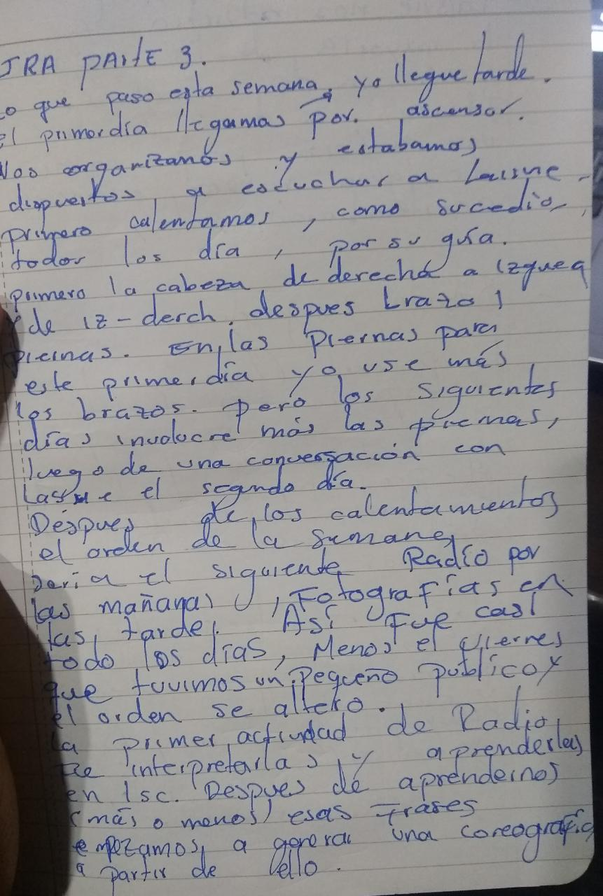 JRA PARTE 3.
lo que paso esta semana, yo llegue tarde.
el primer día llegamos por. ascensor.
Nos organizamos y estabamos
dispuestos a escuchar a
primero calentamos, como sucedio,
todos los día, por su guía.
primero la cabeza, de derecha a izquea
de iz-derch. despues brazo y
piernas. En, las piernas para
este primer día yo use más
los brazos. pero los siguientes
días involucre más las piernas,
luego de una conversación con
el segundo día.
Despues de los calentamientos
el orden de la semana
seria el siguiente Radio por
las mañanas, Fotografías en
las tarde. Así fue casi
todo los días, Menos el vierres
que tuvimos un pequeño publico y
el orden se altero.
la primer actividad de Radio,
Fue interpretarlas y aprenderlas
en lsc. Despues de aprendernos
(más o menos) esas frases
empezamos a generar una coreografía
a partir de ello.